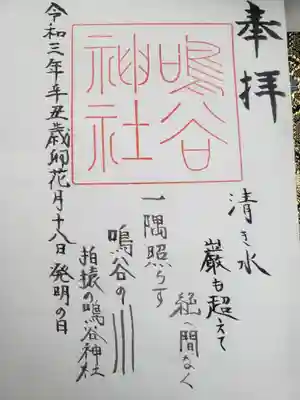 奉拝
清き水
巌も超えて
絶へ間なく
鳴谷神社
一隅照らす
鳴谷の川
拍猿の鳴谷神社
令和三年辛丑歳卯花月十八日 発明の日